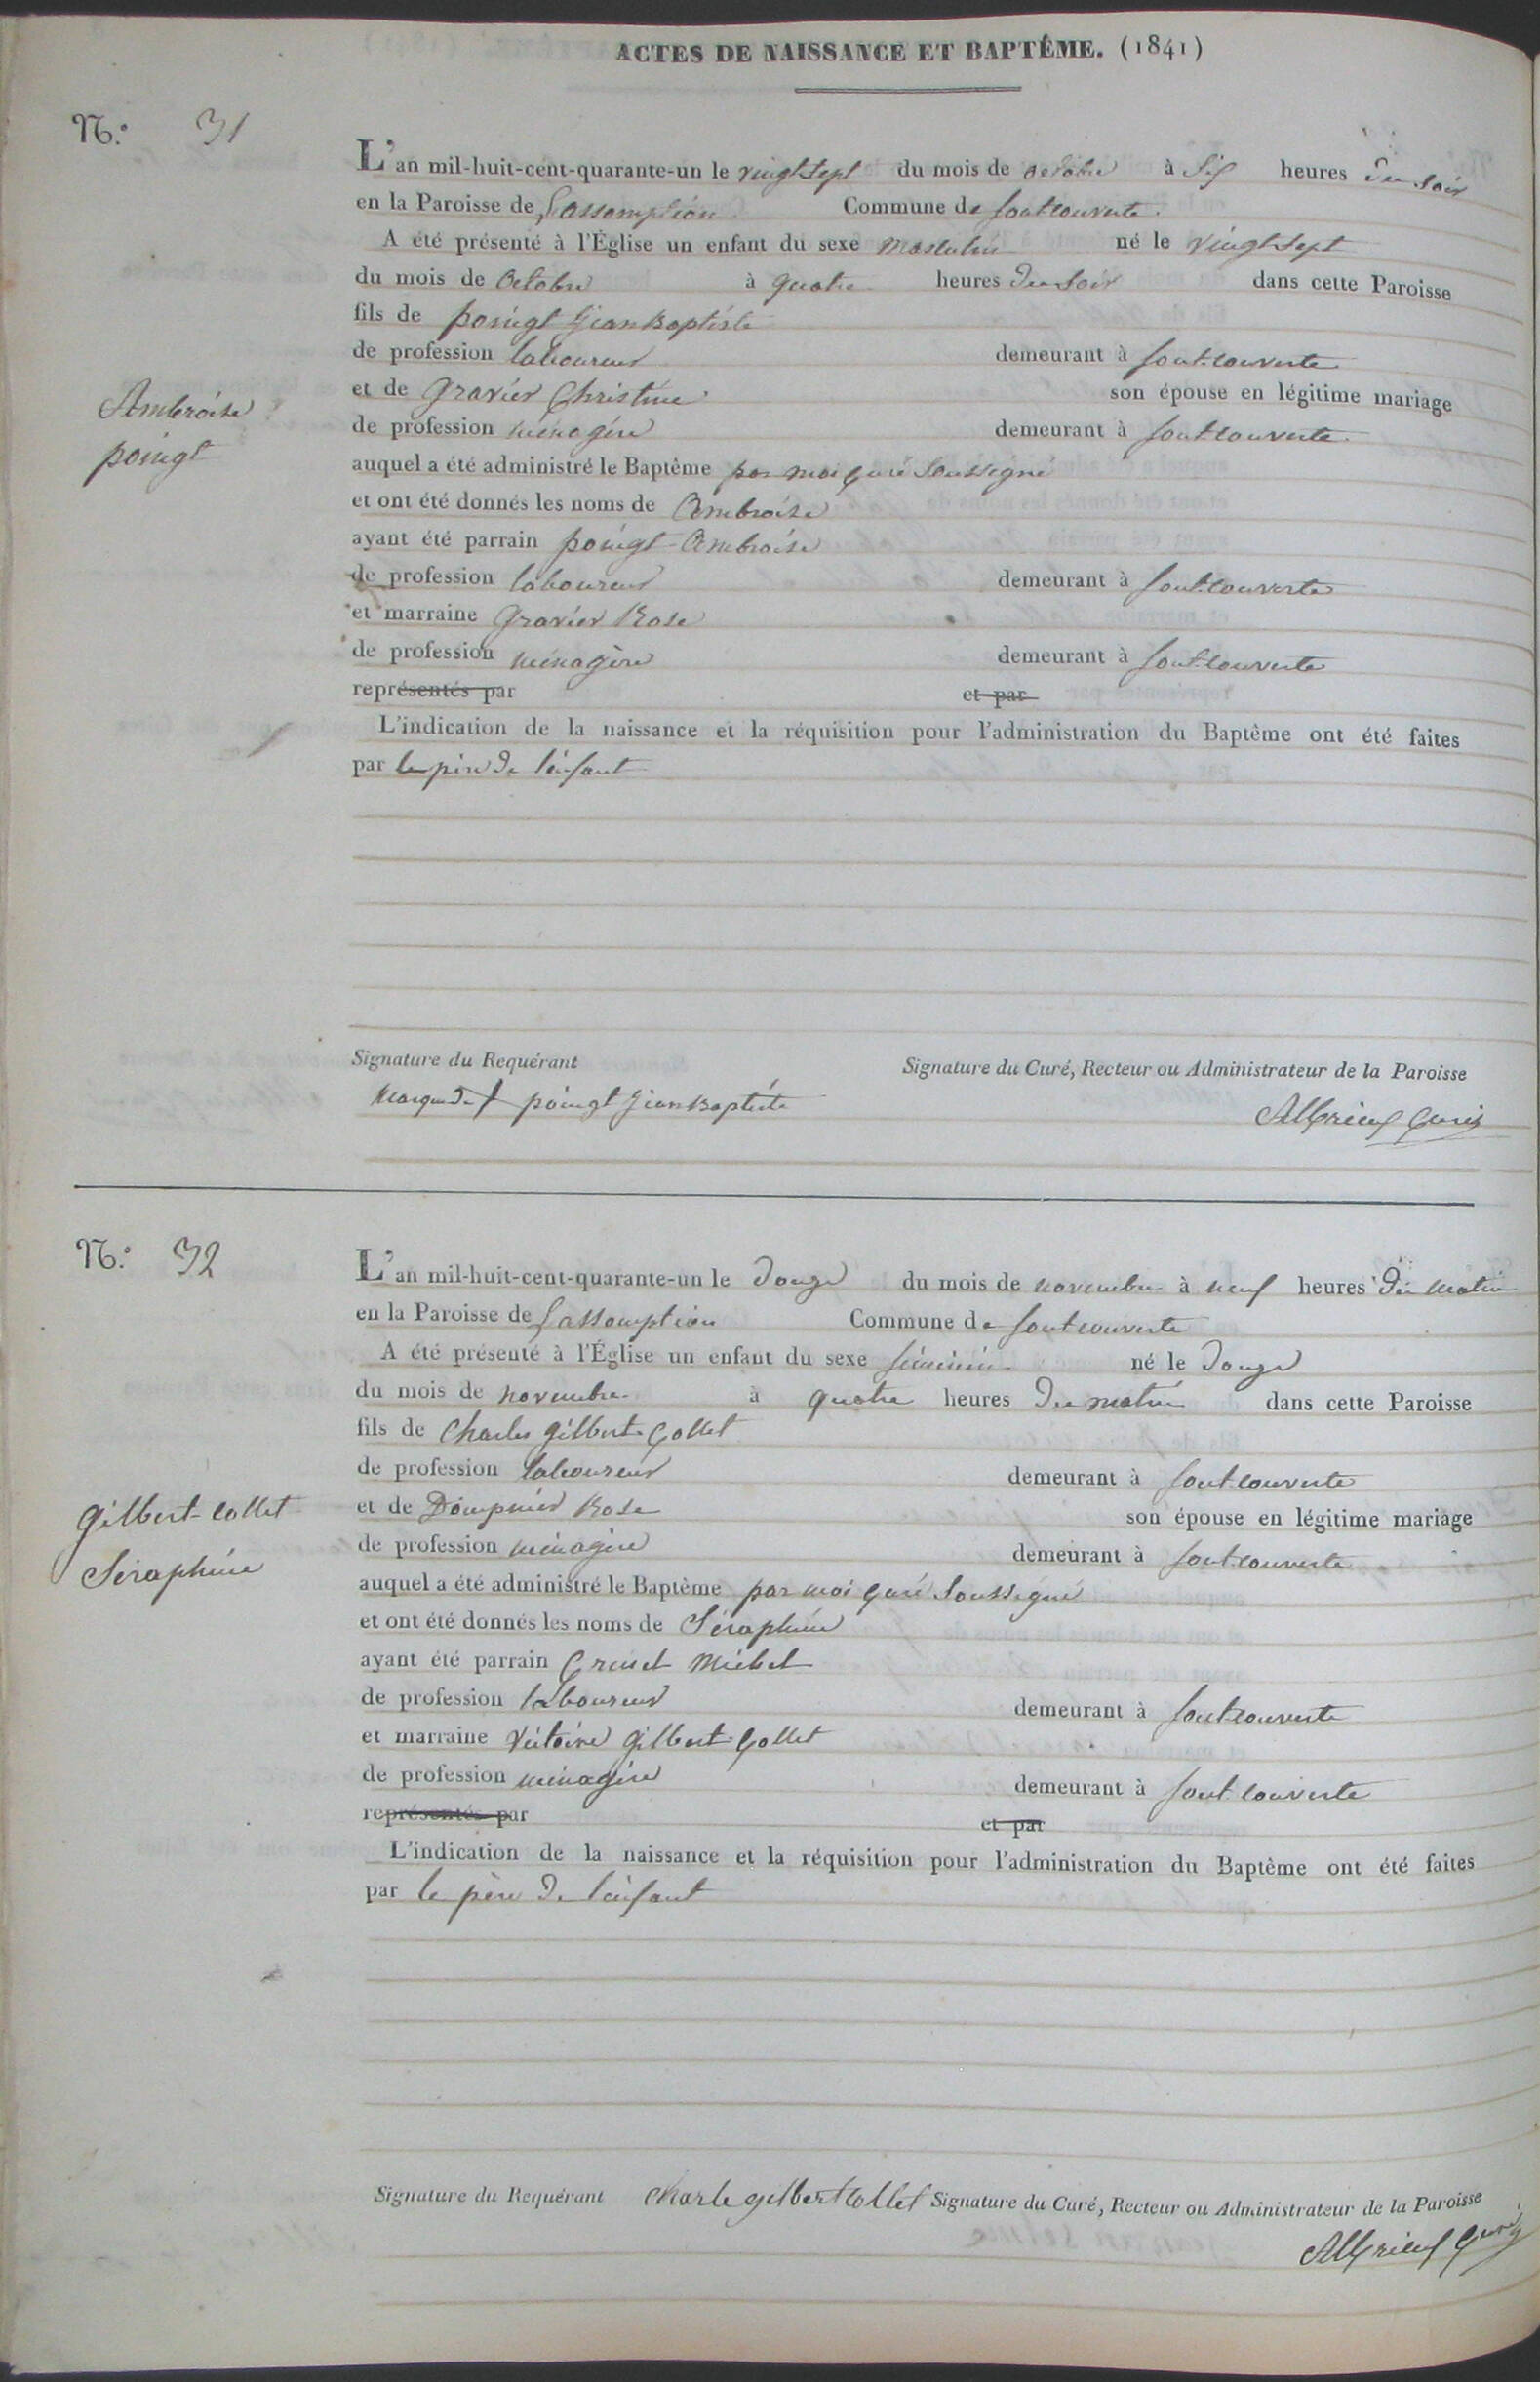 ACTES DE NAISSANCE ET BAPTÊME. (1841)
N.º 31
L'an mil-huit-cent-quarante-un le vingt sept du mois de octobre à Six heures du soir
en la Paroisse de L'assomption Commune de fontcouverte.
A été présenté à l'Église un enfant du sexe masculin né le vingt sept
du mois de Octobre à quatre heures du soir dans cette Paroisse
fils de poingt Jean Baptiste
de profession laboureur demeurant à fontcouverte
et de Gravier Christine son épouse en légitime mariage
de profession ménagère demeurant à fontcouverte
Ambroise
poingt
auquel a été administré le Baptême par moi curé Soussigné
et ont été donnés les noms de Ambroise
ayant été parrain poingt Ambroise
de profession laboureur demeurant à fontcouverte
et marraine Gravier Rose
de profession ménagère demeurant à fontcouverte
représentés par et par
L'indication de la naissance et la réquisition pour l'administration du Baptême ont été faites
par le père de l'enfant
Signature du Requérant Signature du Curé, Recteur ou Administrateur de la Paroisse
Marque de † poingt Jean Baptiste
Albrieux Curé
N.º 32
L'an mil-huit-cent-quarante-un le Douze du mois de novembre à neuf heures du matin
en la Paroisse de L'assomption Commune de fontcouverte
A été présenté à l'Église un enfant du sexe féminin né le Douze
du mois de novembre à quatre heures du matin dans cette Paroisse
fils de Charles gilbert-Collet
de profession laboureur demeurant à fontcouverte
et de Dompnier Rose son épouse en légitime mariage
de profession ménagère demeurant à fontcouverte
gilbert-collet
Séraphine
auquel a été administré le Baptême par moi curé Soussigné
et ont été donnés les noms de Séraphine
ayant été parrain Michel
de profession laboureur demeurant à fontcouverte
et marraine Victoire gilbert-Collet
de profession ménagère demeurant à fontcouverte
représentés par et par
L'indication de la naissance et la réquisition pour l'administration du Baptême ont été faites
par le père de l'enfant
Signature du Requérant Charle gilbert collet Signature du Curé, Recteur ou Administrateur de la Paroisse
Albrieux Curé